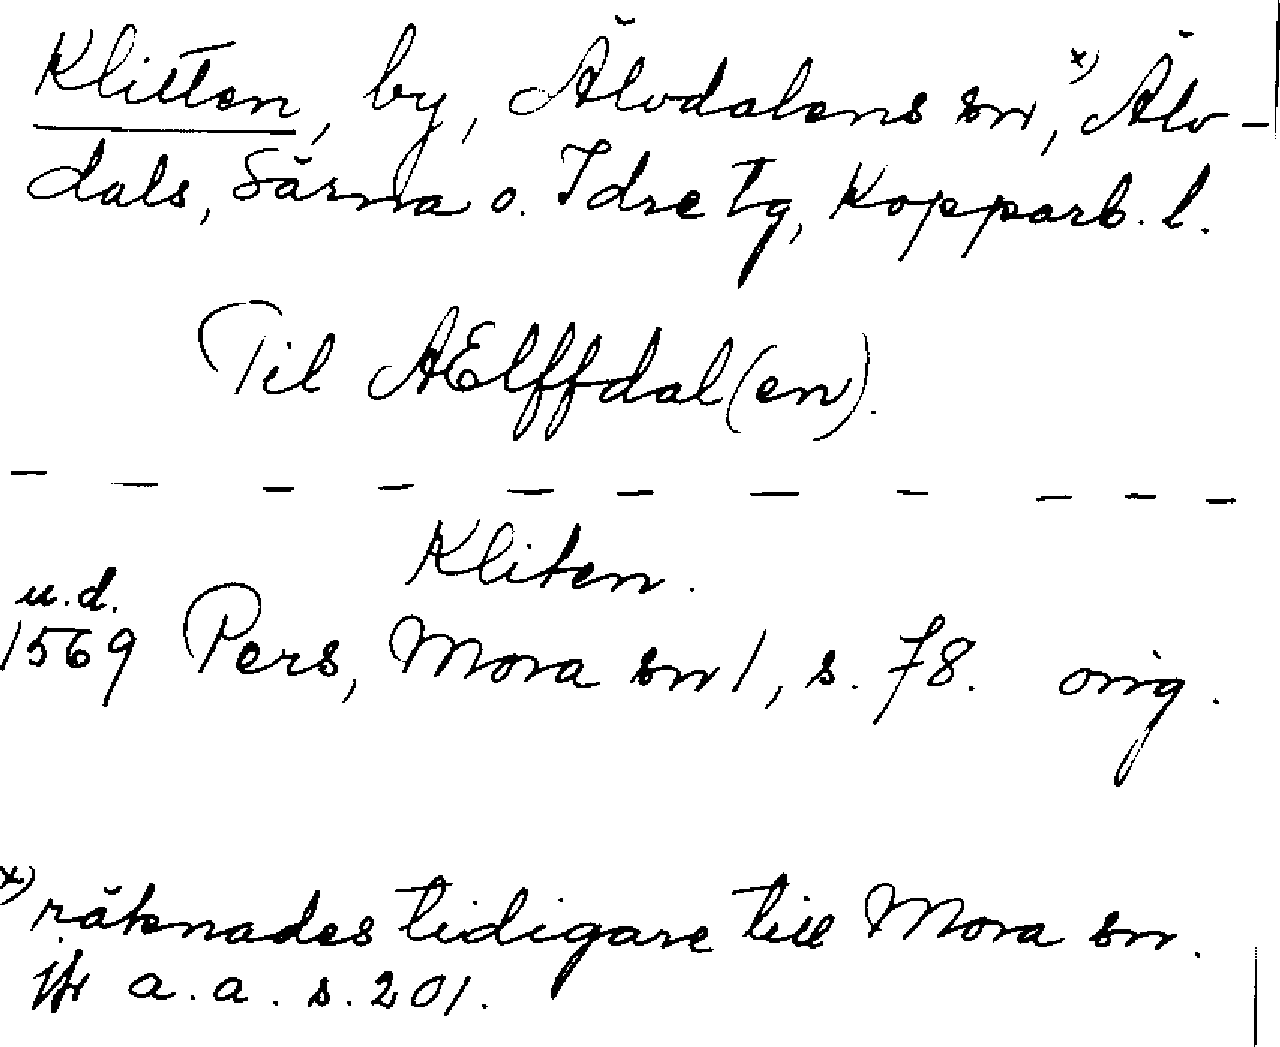 Klitten, by, Älvdalens sn,ˣ⁾ Älv-
dals, Särna o. Idre tg, Kopparb. l.
Til AElffdal(en).
— — — — — — — — — — —
Kliten.
u.d.
1569 Pers, Mora sn 1, s. 78. orig.
ˣ⁾ räknades tidigare till Mora sn.
jfr a.a. s. 201.